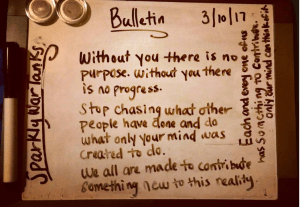 Bulletin
3/10/17
Sparkly War Tanks
Without you there is no
purpose. Without you there
is no progress.
Stop chasing what other
people have done and do
what only your mind was
created to do.
We all are made to contribute
something new to this reality.
Each and every one of us
has something to contribute.
only our mind can think of it